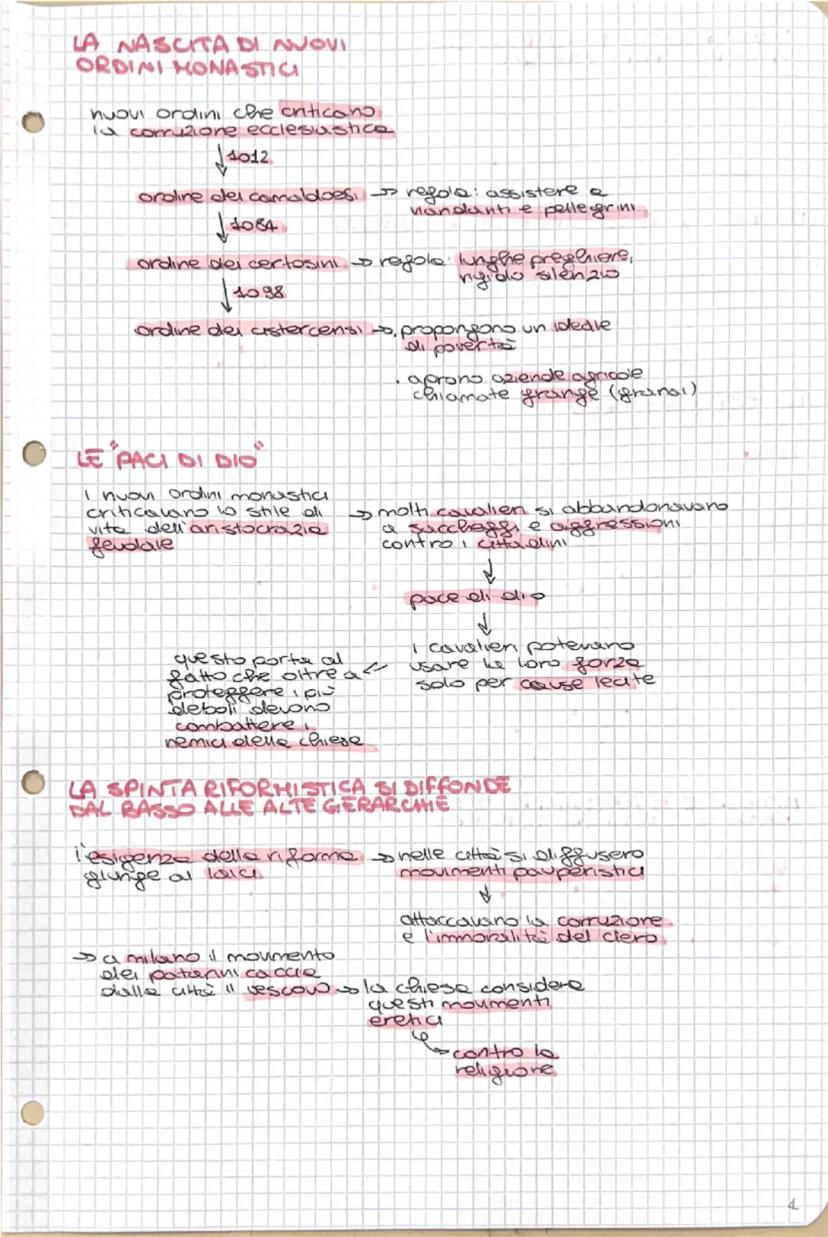 LA NASCITA DI NUOVI
ORDINI MONASTICI
nuovi ordini che criticano
la corruzione ecclesiastica
↓ 1012
ordine dei camaldoesi → regola: assistere a
viandanti e pellegrini
↓ 1084
ordine dei certosini → regola: lunghe preghiere,
rigido silenzio
↓ 1098
ordine dei cistercensi → . propongono un ideale
di povertà
. aprono aziende agricole
chiamate grange (granai)
LE "PACI DI DIO"
i nuovi ordini monastici
criticavano lo stile di
vita dell'aristocrazia
feudale
→ molti cavalieri si abbandonavano
a saccheggi e aggressioni
contro i cittadini
↓
pace di dio
↓
i cavalieri potevano
usare la loro forza
solo per cause lecite
←
questo porta al
fatto che oltre a
proteggere i più
deboli devono
combattere i
nemici della chiesa
LA SPINTA RIFORMISTICA SI DIFFONDE
DAL BASSO ALLE ALTE GERARCHIE
l'esigenza della riforma
giunge ai laici
→ nelle città si diffusero
movimenti pauperistici
↓
attaccavano la corruzione
e l'immoralità del clero
→ a milano il movimento
dei patarini caccia
dalla città il vescovo → la chiesa considera
questi movimenti
eretici
→ contro la
religione
1